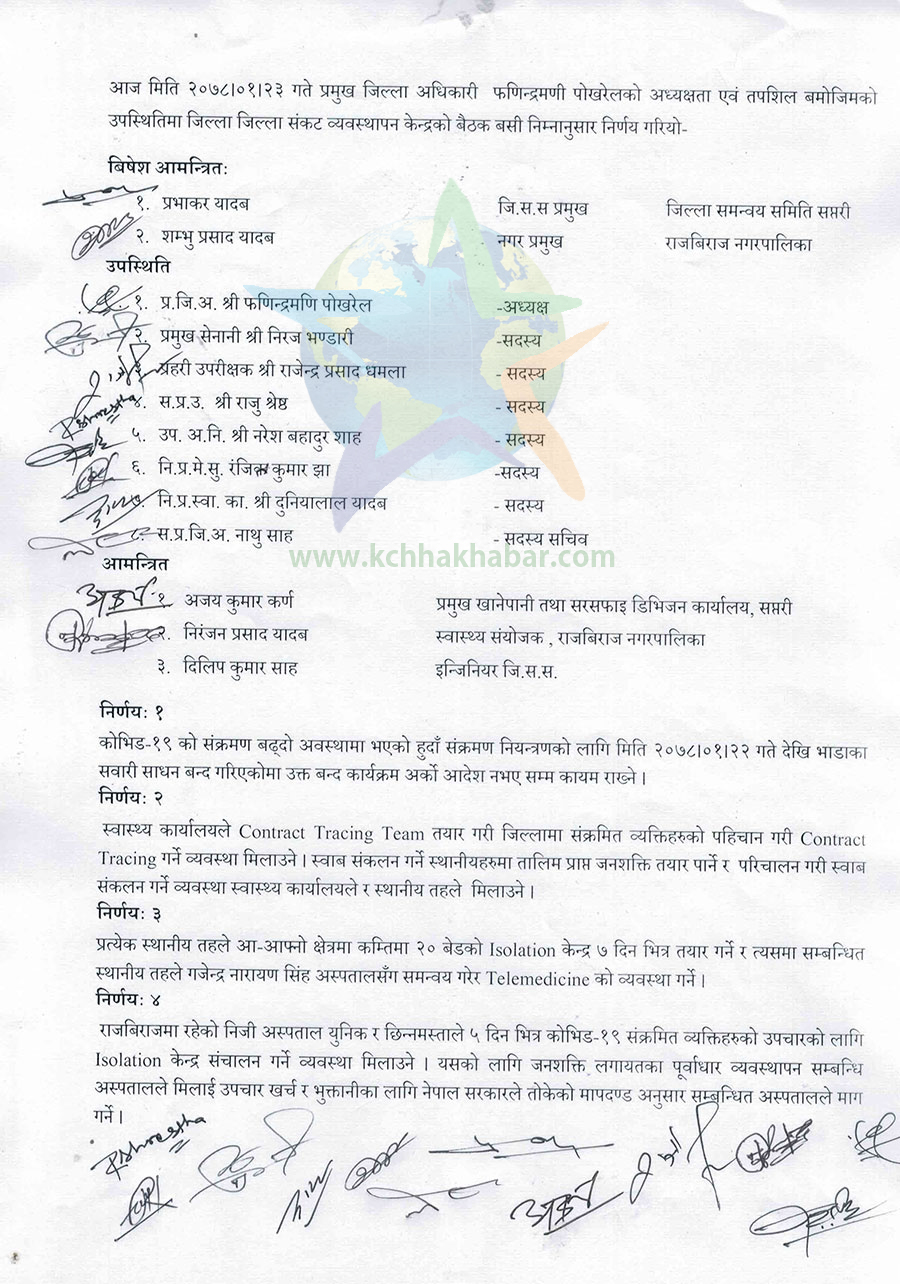 आज मिति २०७८।०१।२३ गते प्रमुख जिल्ला अधिकारी फणिन्द्रमणी पोखरेलको अध्यक्षता एवं तपशिल बमोजिमको
उपस्थितिमा जिल्ला जिल्ला संकट व्यवस्थापन केन्द्रको बैठक बसी निम्नानुसार निर्णय गरियो-
बिषेश आमन्त्रितः
१. प्रभाकर यादब जि.स.स प्रमुख जिल्ला समन्वय समिति सप्तरी
२. शम्भु प्रसाद यादब नगर प्रमुख राजबिराज नगरपालिका
उपस्थिति
१. प्र.जि.अ. श्री फणिन्द्रमणि पोखरेल -अध्यक्ष
२. प्रमुख सेनानी श्री निरज भण्डारी -सदस्य
३. प्रहरी उपरीक्षक श्री राजेन्द्र प्रसाद धमला - सदस्य
४. स.प्र.उ. श्री राजु श्रेष्ठ - सदस्य
५. उप. अ.नि. श्री नरेश बहादुर शाह - सदस्य
६. नि.प्र.मे.सु. कुमार झा -सदस्य
नि.प्र.स्वा. का. श्री दुनियालाल यादब - सदस्य
८. स.प्र.जि.अ. नाथु साह - सदस्य सचिव
www.kchhakhabar.com
आमन्त्रित
१ अजय कुमार कर्ण प्रमुख खानेपानी तथा सरसफाइ डिभिजन कार्यालय, सप्तरी
२. निरंजन प्रसाद यादब स्वास्थ्य संयोजक , राजबिराज नगरपालिका
३. दिलिप कुमार साह इन्जिनियर जि.स.स.
निर्णयः १
कोभिड-१९ को संक्रमण बढ्दो अवस्थामा भएको हुदाँ संक्रमण नियन्त्रणको लागि मिति २०७८।०१।२२ गते देखि भाडाका
सवारी साधन बन्द गरिएकोमा उक्त बन्द कार्यक्रम अर्को आदेश नभए सम्म कायम राख्ने ।
निर्णयः २
स्वास्थ्य कार्यालयले Contract Tracing Team तयार गरी जिल्लामा संक्रमित व्यक्तिहरुको पहिचान गरी Contract
Tracing गर्ने व्यवस्था मिलाउने । स्वाब संकलन गर्ने स्थानीयहरुमा तालिम प्राप्त जनशक्ति तयार पार्ने र परिचालन गरी स्वाब
संकलन गर्ने व्यवस्था स्वास्थ्य कार्यालयले र स्थानीय तहले मिलाउने ।
निर्णयः ३
प्रत्येक स्थानीय तहले आ-आफ्नो क्षेत्रमा कम्तिमा २० बेडको Isolation केन्द्र ७ दिन भित्र तयार गर्ने र त्यसमा सम्बन्धित
स्थानीय तहले गजेन्द्र नारायण सिंह अस्पतालसँग समन्वय गरेर Telemedicine को व्यवस्था गर्ने ।
निर्णयः ४
राजबिराजमा रहेको निजी अस्पताल युनिक र छिन्नमस्ताले ५ दिन भित्र कोभिड-१९ संक्रमित व्यक्तिहरुको उपचारको लागि
Isolation केन्द्र संचालन गर्ने व्यवस्था मिलाउने । यसको लागि जनशक्ति लगायतका पूर्वाधार व्यवस्थापन सम्बन्धि
अस्पतालले मिलाई उपचार खर्च र भुक्तानीका लागि नेपाल सरकारले तोकेको मापदण्ड अनुसार सम्बन्धित अस्पतालले माग
गर्ने ।